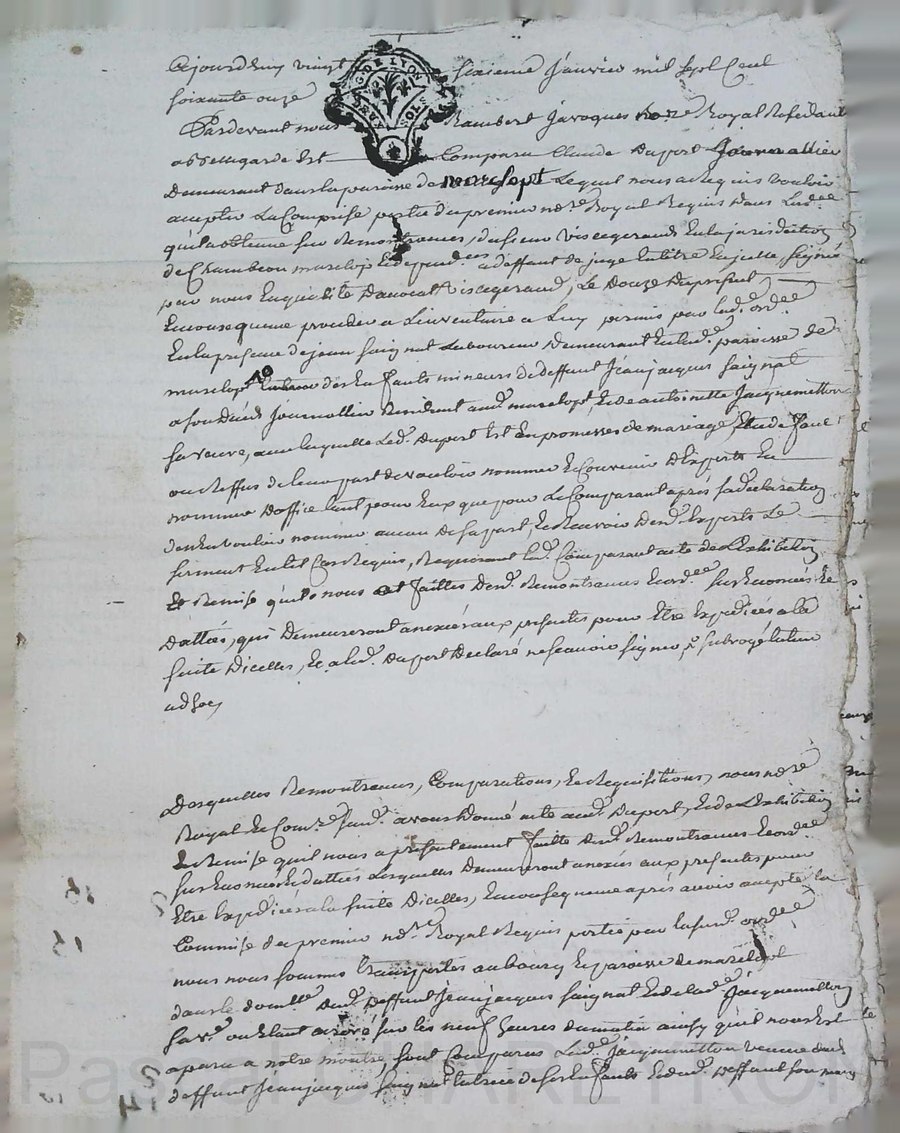 Ajourdhuy vingt sixieme Janvier mil sept Cent
soixante onze
G. DE LYON
Pardevant nous Rambert Javoques nore Royal Residant
a bellegarde Est Comparu Claude Duport Journallier
Demeurant dans la paroisse de marclopt Lequel nous a Requis vouloir
accepter La Commise portée du premier nore Royal Requis Dans Lordee
quil a obtenue sur Remontrances, du sieur visegerand En la jurisdiction
de Chambeon marclop Et dependces a deffaut de juge En titre En jcelle, signée
par nous En qualité D'avocat visegerand, Le Douze Du present
En consequence proceder a L'inventaire a Luy permis par lad. ordee
En la presence de jean saignat Laboureur Demeurant En lad. paroisse de
marclop des Enfants mineurs de deffunt Jean jacques saignat
a son vivant Journallier Residant aud. marclopt, Et de antoinette Jacquemetton
sa veuve, avec laquelle Led. Duport Est En promesses de mariage, Et de faute
ou Reffus de leur part de vouloir nommer Et Convenir D'Experts En
nommer D'office tant pour Eux que pour Le Comparant apres sa declaration
den En vouloir nommer aucun de sa part, Et Recevoir Desd. Experts Le
serment En tel Cas Requis, Requerant led. Comparant acte de L'exhibition
Et Remise qu'il nous a faittes Desd. Remontrances Et ordee sus Enoncées Et
Dattées, qui Demeureront anexées aux presentes pour Etre Expediées a la
suite Dicelles, Et a led. Duport Declaré ne scavoir signer subrogé tuteur
ad hoc,
Desquelles Remontrances, Comparutions, Et Requisitions, nous nore
Royal Et Comre susd. avons Donné acte aud. Duport, Et de L'exhibition
Et Remise quil nous a presentement faitte Desd. Remontrances Et ordee
sus Enoncées Et dattées Lesquelles Demeureront anexées aux presentes pour
Etre Expediées a la suite Dicelles, En consequence apres avoir accepté la
Commise du premier nore Royal Requis portée par la susd. ordee
nous nous sommes transportés au bourg Et paroisse de marclopt
dans le domlle Dud. Deffunt Jean jacques saignat Et de lad. Jacquemetton
sa ve. ou Etant arrivé sur les neuf heures du matin ainsy qu'il nous Est
aparu a notre montre, sont Comparus Lad. Jacquemetton veuve dud.
deffunt Jean jacques saignat tutrice de ses Enfants Et dud. Deffunt son mary
Pascal CHAREYRON